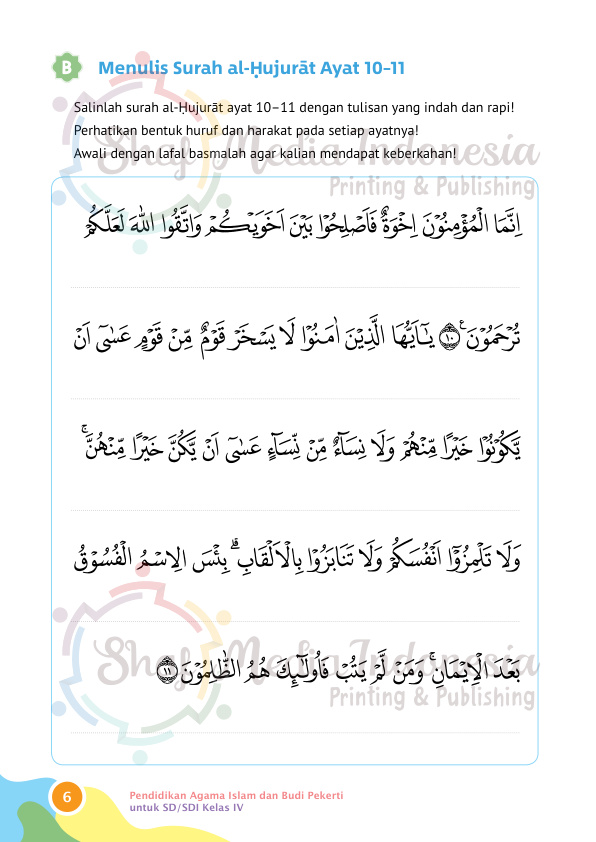 B Menulis Surah al-Ḥujurāt Ayat 10–11
Salinlah surah al-Ḥujurāt ayat 10–11 dengan tulisan yang indah dan rapi!
Perhatikan bentuk huruf dan harakat pada setiap ayatnya!
Awali dengan lafal basmalah agar kalian mendapat keberkahan!
Shaf Media Indonesia
Printing & Publishing
اِنَّمَا الْمُؤْمِنُوْنَ اِخْوَةٌ فَاَصْلِحُوْا بَيْنَ اَخَوَيْكُمْ وَاتَّقُوا اللّٰهَ لَعَلَّكُمْ
تُرْحَمُوْنَ ࣖ ١٠ يٰٓاَيُّهَا الَّذِيْنَ اٰمَنُوْا لَا يَسْخَرْ قَوْمٌ مِّنْ قَوْمٍ عَسٰٓى اَنْ
يَّكُوْنُوْا خَيْرًا مِّنْهُمْ وَلَا نِسَاۤءٌ مِّنْ نِّسَاۤءٍ عَسٰٓى اَنْ يَّكُنَّ خَيْرًا مِّنْهُنَّۚ
وَلَا تَلْمِزُوْٓا اَنْفُسَكُمْ وَلَا تَنَابَزُوْا بِالْاَلْقَابِۗ بِئْسَ الِاسْمُ الْفُسُوْقُ
بَعْدَ الْاِيْمَانِۚ وَمَنْ لَّمْ يَتُبْ فَاُولٰۤىِٕكَ هُمُ الظّٰلِمُوْنَ ١١
Shaf Media Indonesia
Printing & Publishing
6
Pendidikan Agama Islam dan Budi Pekerti
untuk SD/SDI Kelas IV